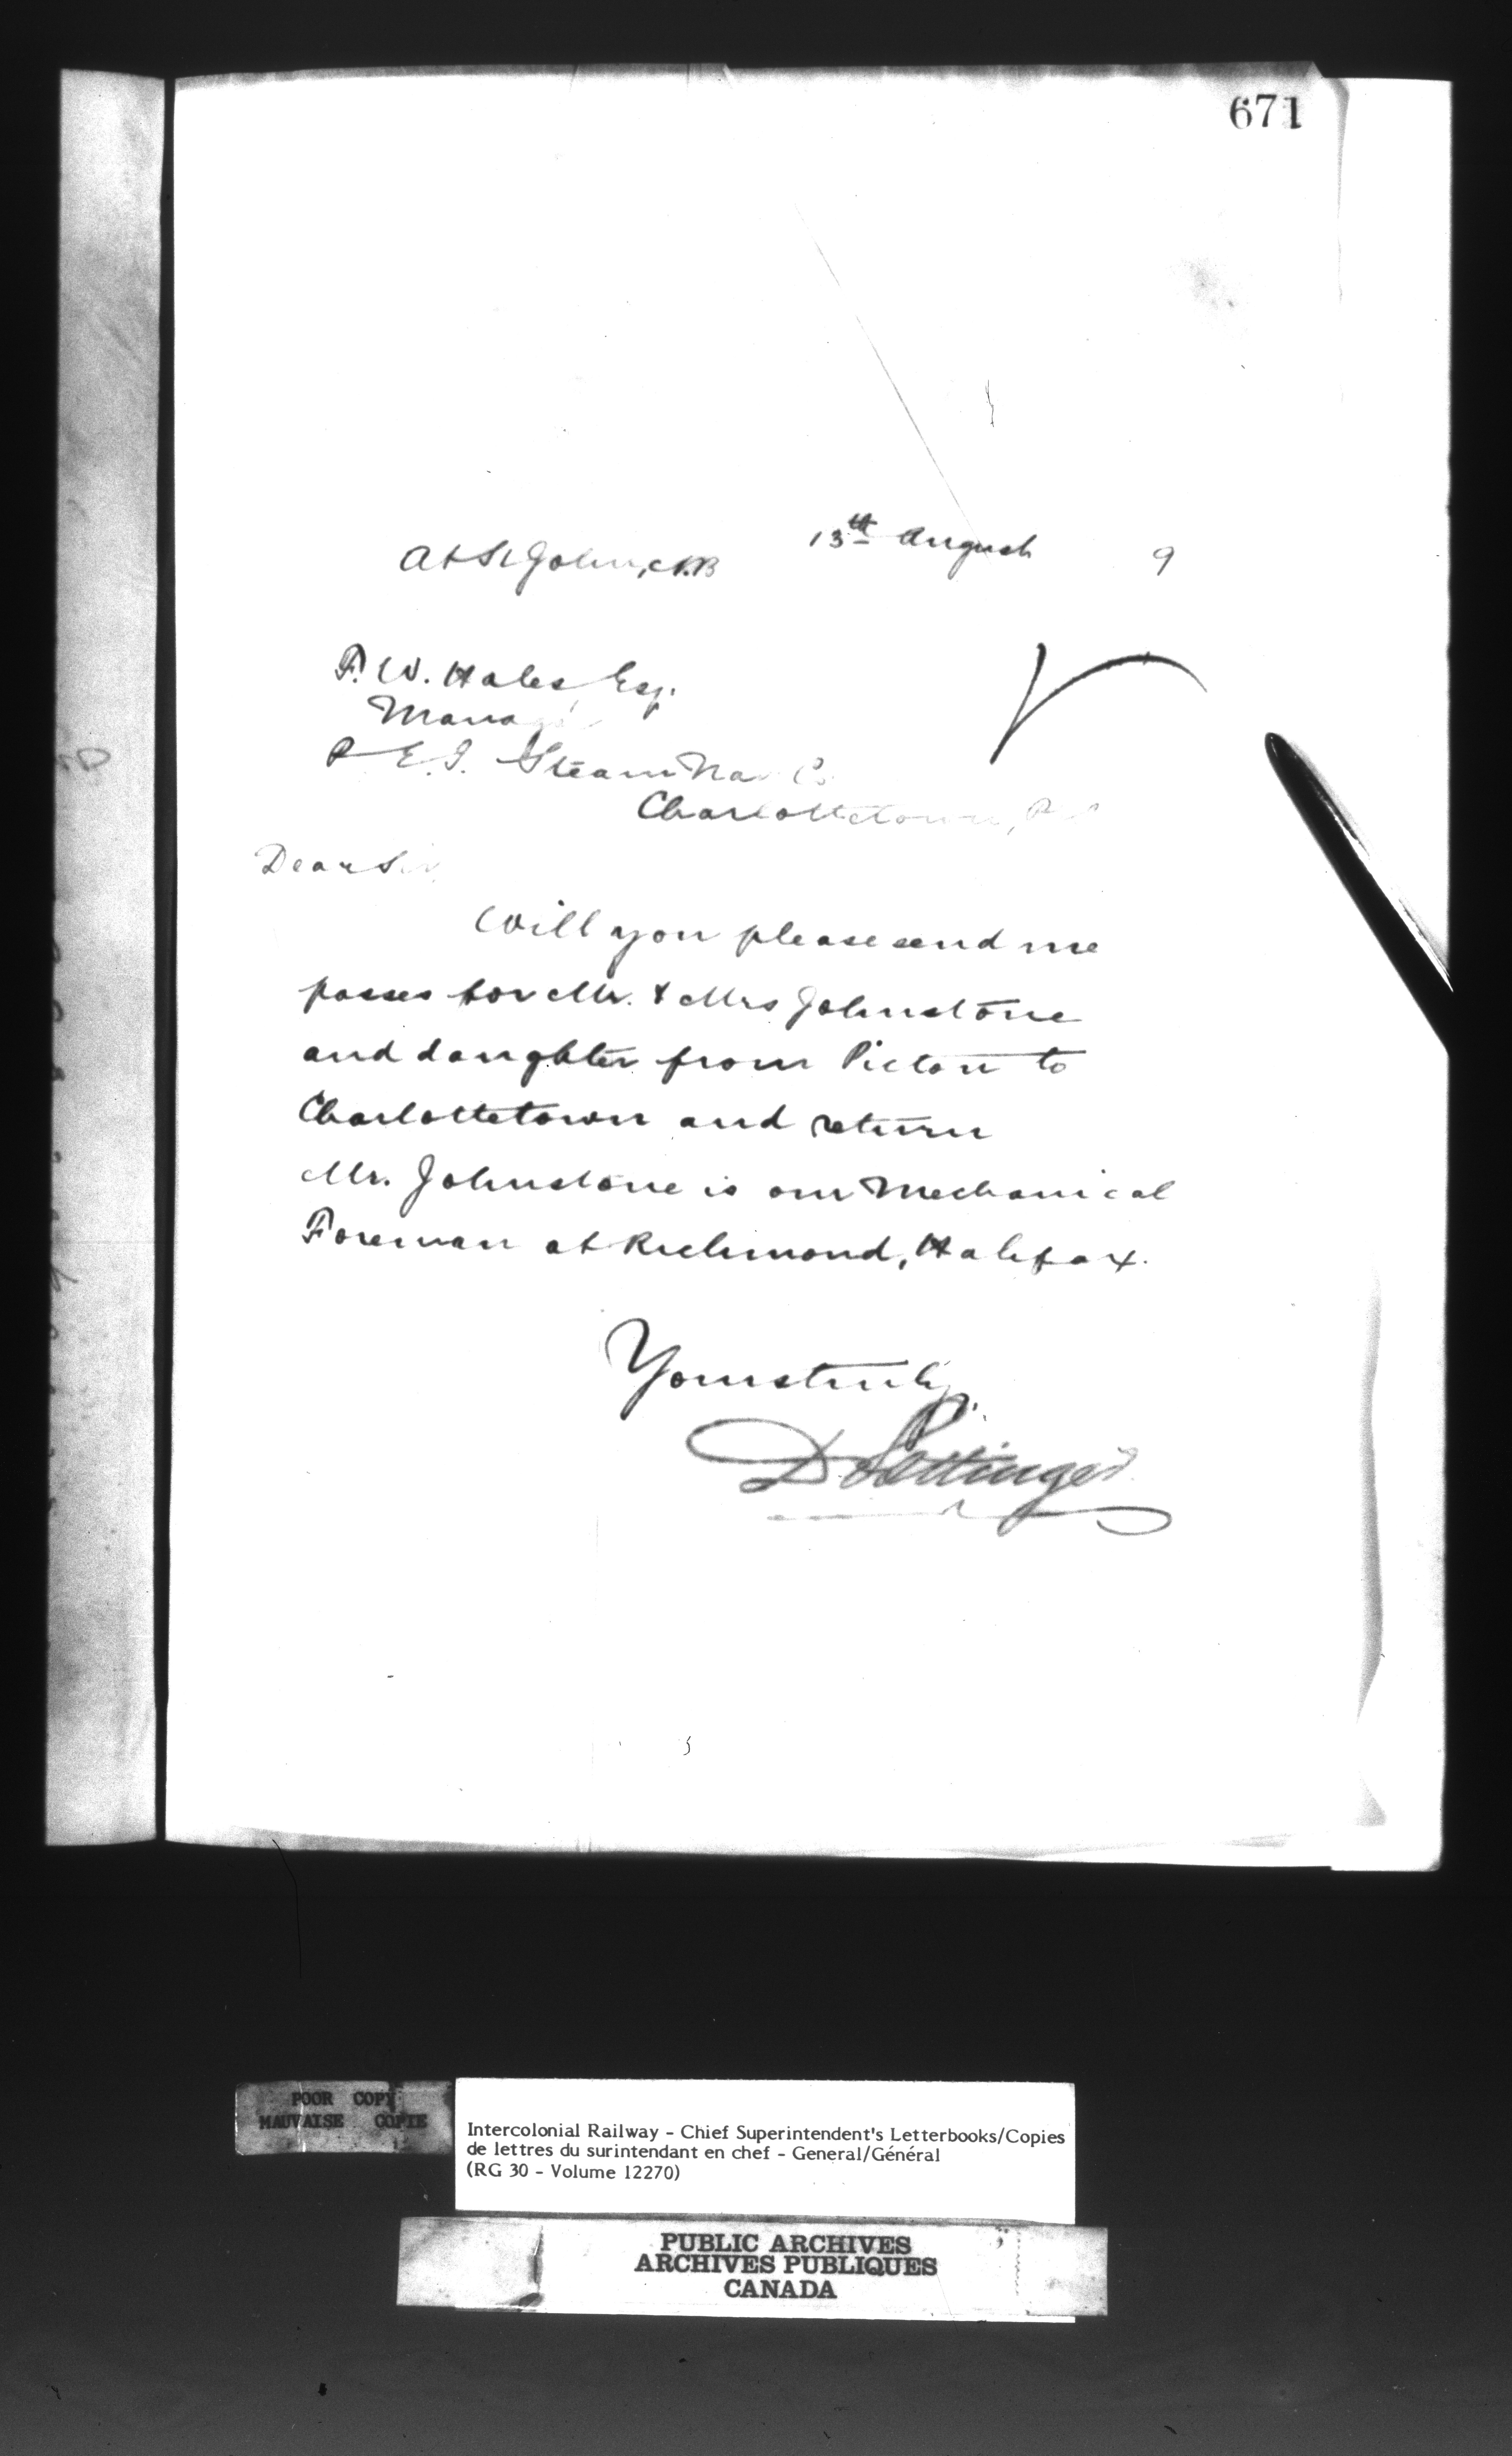 671
At St John, N.B 13th August 9
F. W. Hales Esq.
Manager
P E. I. Steam Nav Co
Charlottetown, P E I
Dear Sir
Will you please send me
passes for Mr. & Mrs Johnstone
and daughter from Pictou to
Charlottetown and return
Mr. Johnstone is our Mechanical
Foreman at Richmond, Halifax.
Yours truly
D Pottinger
POOR COPY
MAUVAISE COPIE
Intercolonial Railway - Chief Superintendent's Letterbooks/Copies
de lettres du surintendant en chef - General/Général
(RG 30 - Volume 12270)
PUBLIC ARCHIVES
ARCHIVES PUBLIQUES
CANADA